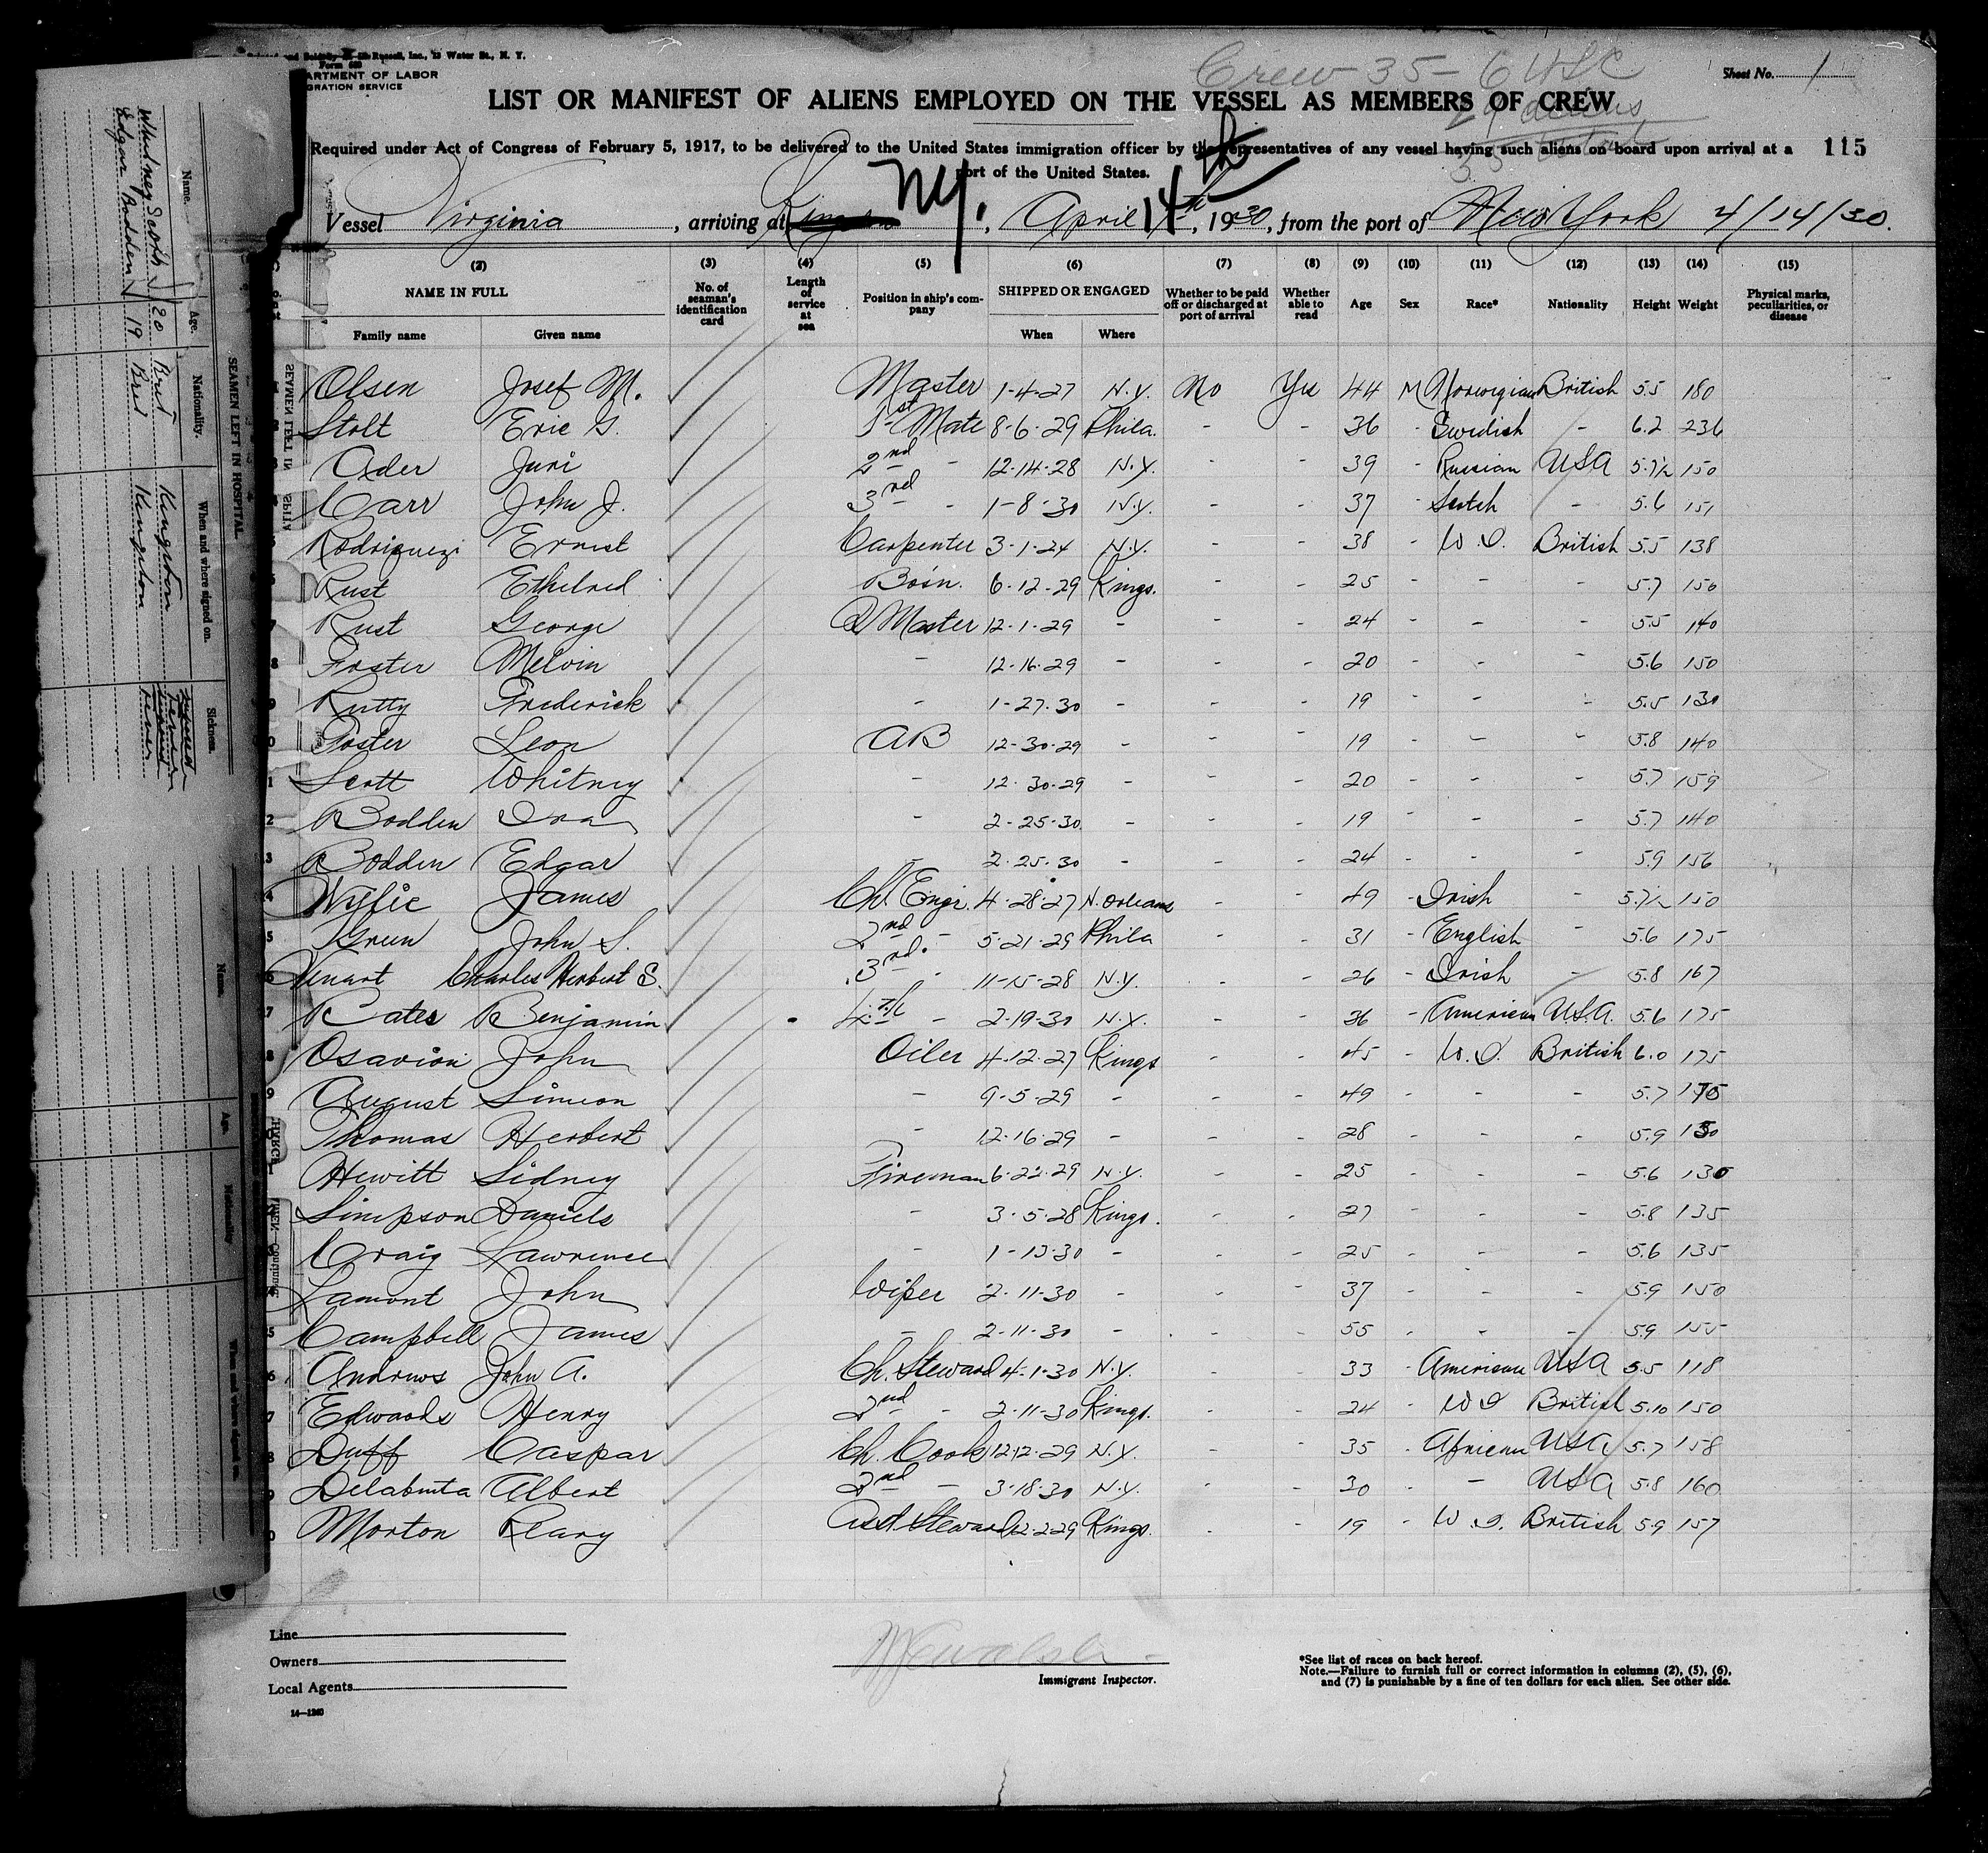 Form 680
DEPARTMENT OF LABOR
IMMIGRATION SERVICE
Crew 35 - 6 USC
29 aliens
35 total
Sheet No. 1
LIST OR MANIFEST OF ALIENS EMPLOYED ON THE VESSEL AS MEMBERS OF CREW
Required under Act of Congress of February 5, 1917, to be delivered to the United States immigration officer by the representatives of any vessel having such aliens on board upon arrival at a
port of the United States.
115
Vessel Virginia, arriving at N.Y., April 14th, 1930, from the port of New York 4/14/30.
(2) (3) (4) (5) (6) (7) (8) (9) (10) (11) (12) (13) (14) (15)
NAME IN FULL No. of seaman's identification card Length of service at sea Position in ship's company SHIPPED OR ENGAGED Whether to be paid off or discharged at port of arrival Whether able to read Age Sex Race* Nationality Height Weight Physical marks, peculiarities, or disease
Family name Given name When Where
Olsen Josef M. Master 1-4-27 N.Y. No Yes 44 M Norwegian British 5.5 180
Stolt Eric G. 1st Mate 8-6-29 Phila. - - 36 - Swedish - 6.2 236
Ader Juri 2nd - 12-14-28 N.Y. - - 39 - Russian USA 5.7½ 150
Carr John J. 3rd - 1-8-30 N.Y. - - 37 - Scotch - 5.6 151
Rodriquez Ernest Carpenter 3-1-24 N.Y. - - 38 - W.I. British 5.5 138
Rust Ethelred Bos'n. 6-12-29 Kings. - - 25 - - - 5.7 150
Rust George Q Master 12-1-29 - - - 24 - - - 5.5 140
Foster Melvin - 12-16-29 - - - 20 - - - 5.6 150
Rutty Frederick - 1-27-30 - - - 19 - - - 5.5 130
Foster Leon AB 12-30-29 - - - 19 - - - 5.8 140
Scott Whitney - 12-30-29 - - - 20 - - - 5.7 159
Bodden Ira - 2-25-30 - - - 19 - - - 5.7 140
Bodden Edgar - 2-25-30 - - - 24 - - - 5.9 156
Wylie James Ch. Engr. 4-28-27 N. Orleans - - 49 - Irish - 5.7½ 150
Green John S. 2nd - 5-21-29 Phila - - 31 - English - 5.6 175
Venart Charles Herbert S. 3rd - 11-15-28 N.Y. - - 26 - Irish - 5.8 167
Bates Benjamin 4th - 2-19-30 N.Y. - - 36 - American U.S.A. 5.6 175
Osavion John Oiler 4-12-27 Kings - - 45 - W.I. British 6.0 175
August Simeon - 9-5-29 - - - 49 - - - 5.7 175
Thomas Herbert - 12-16-29 - - - 28 - - - 5.9 150
Hewitt Sidney Fireman 6-22-29 N.Y. - - 25 - - - 5.6 130
Simpson Daniels - 3-5-28 Kings. - - 27 - - - 5.8 135
Craig Lawrence - 1-13-30 - - - 25 - - - 5.6 135
Lamont John Wiper 2-11-30 - - - 37 - - - 5.9 150
Campbell James - 2-11-30 - - - 55 - - - 5.9 155
Andrews John A. Ch. Steward 4-1-30 N.Y. - - 33 - American USA 5.5 118
Edwards Henry 2nd - 2-11-30 Kings. - - 24 - W I British 5.10 150
Duff Caspar Ch. Cook 12-12-29 N.Y. - - 35 - African USA 5.7 158
Albert 2nd - 3-18-30 N.Y. - - 30 - - USA 5.8 160
Morton Asst Steward 12-2-29 Kings. - - 19 - W.I. British 5.9 157
Line
Owners
Local Agents
14—1240
Immigrant Inspector.
*See list of races on back hereof.
Note.—Failure to furnish full or correct information in columns (2), (5), (6),
and (7) is punishable by a fine of ten dollars for each alien. See other side.
SEAMEN LEFT IN HOSPITAL
Name. Age. Nationality. When and where signed on. Sickness.
Whitney Scott 20 Brit Kingston
Edgar Bodden 19 Brit Kingston
Name. Age. Nationality. When and where signed on.